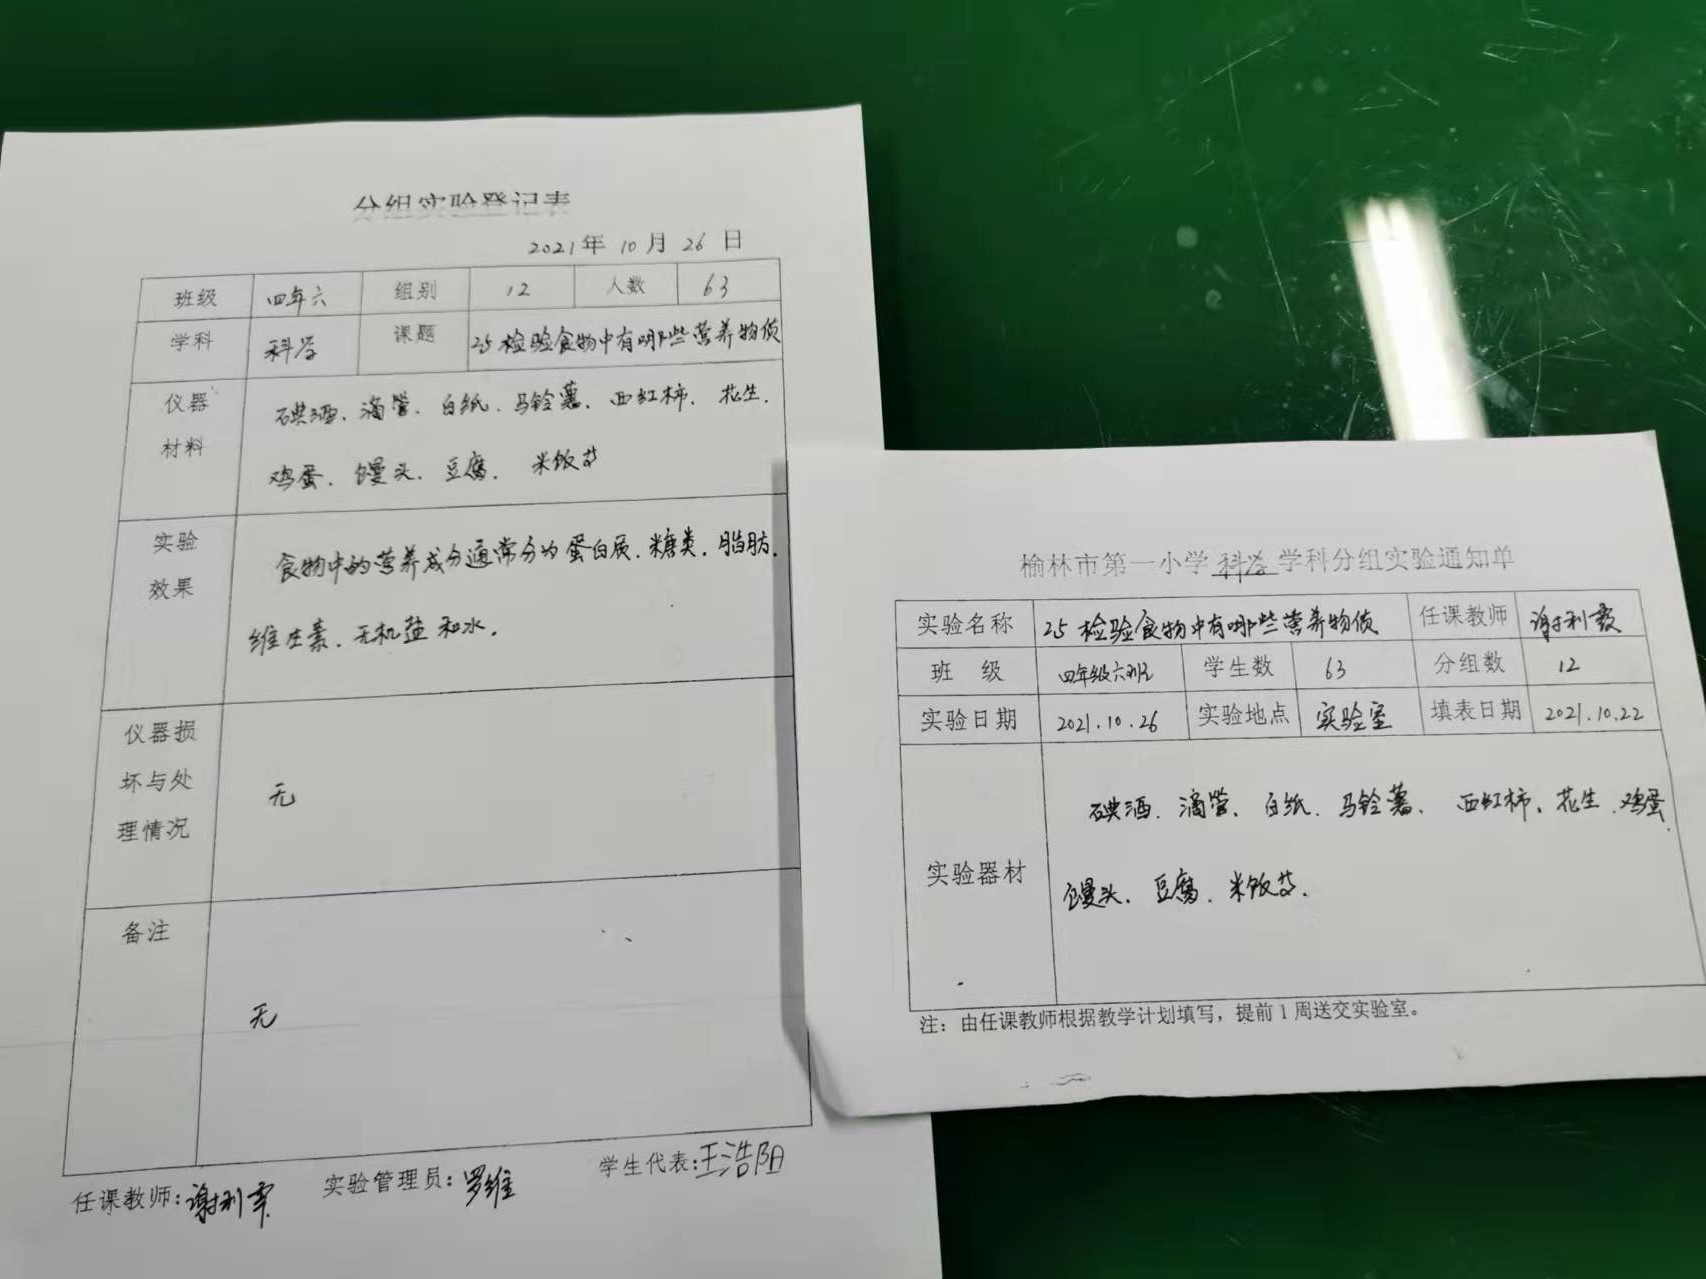 分组实验登记表
2021年 10月 26日
班级 四年六 组别 12 人数 63
学科 科学 课题 25 检验食物中有哪些营养物质
仪器材料
碘酒、滴管、白纸、马铃薯、西红柿、花生、
鸡蛋、馒头、豆腐、米饭等
实验效果
食物中的营养成分通常分为蛋白质、糖类、脂肪、
维生素、无机盐和水。
仪器损坏与处理情况
无
备注
无
任课教师: 谢利 实验管理员: 罗维 学生代表: 王浩阳
榆林市第一小学 科学 学科分组实验通知单
实验名称 25 检验食物中有哪些营养物质 任课教师 谢利霞
班 级 四年级六班 学生数 63 分组数 12
实验日期 2021.10.26 实验地点 实验室 填表日期 2021.10.22
实验器材
碘酒、滴管、白纸、马铃薯、西红柿、花生、鸡蛋、
馒头、豆腐、米饭等.
注：由任课教师根据教学计划填写，提前1周送交实验室。